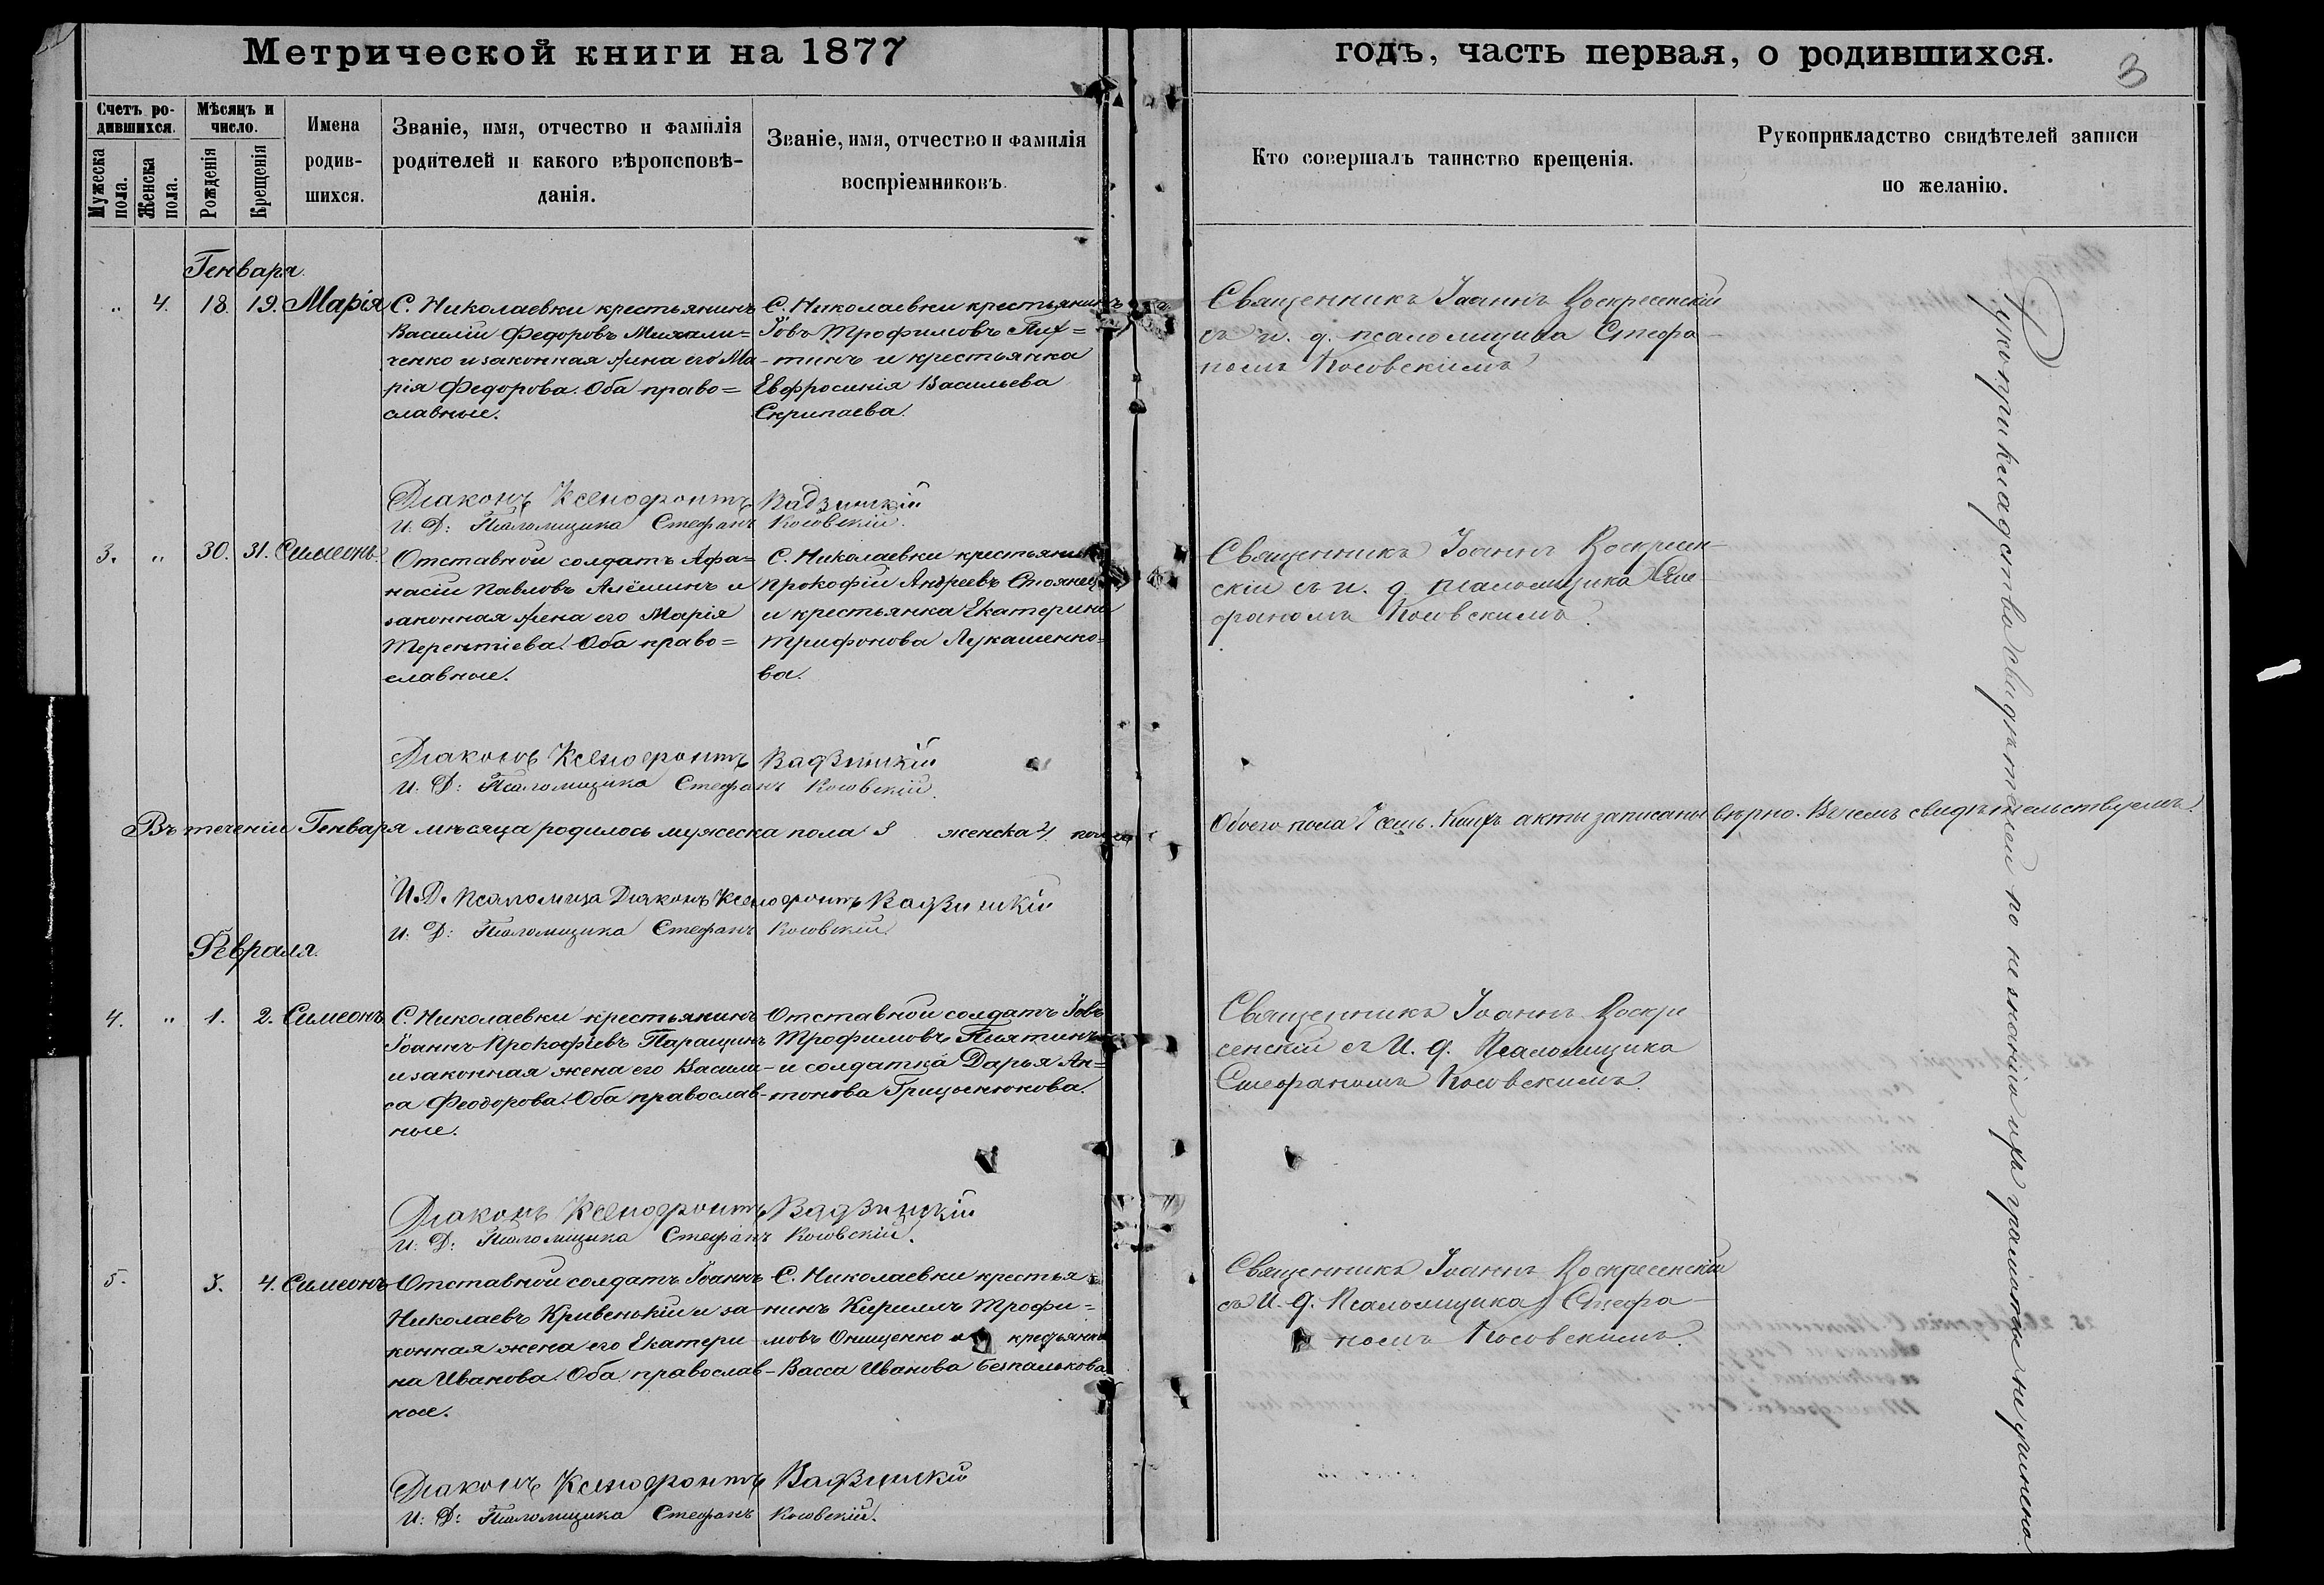 Метрической книги на 1877
годъ, часть первая, о родившихся.
3
Счетъ ро-
дившихся.
Мужеска пола.
Женска пола.
Мѣсяцъ и
число.
Рожденія
Крещенія
Имена
родив-
шихся.
Званіе, имя, отчество и фамилія
родителей и какого вѣроисповѣ-
данія.
Званіе, имя, отчество и фамилія
воспріемниковъ.
Кто совершалъ таинство крещенія.
Рукоприкладство свидѣтелей записи
по желанію.
Генваря.
„ 4. 18. 19. Марія
С. Николаевки крестьянинъ
Василій Федоровъ
ченко и законная жена его Ма-
рія Федорова. Оба право=
славные.
С. Николаевки крестьянинъ
Іовъ Трофимовъ
тинъ и крестьянка
Евфросинія Васильева
Скрипаева.
Священникъ Іоаннъ Воскресенскій
съ и. д. псаломщика Стефа-
номъ Косовскимъ
Діаконъ Ксенофонтъ
И: Д: Псаломщика Стефанъ Косовскій.
3. „ 30. 31. Симеонъ.
Отставной солдатъ Афа=
насій Павловъ Алёшинъ и
законная жена его Марія
Терентіева. Оба право=
славные.
С. Николаевки крестьянинъ
Прокофій Андреевъ Стоянец
и крестьянка Екатерина
Трифонова Лукашенко=
ва.
Священникъ Іоаннъ Воскресен-
скій съ и. д. псаломщика Сте-
фаномъ Косовскимъ.
Діаконъ Ксенофонтъ
И: Д: Псаломщика Стефанъ Косовскій.
Въ теченіи Генваря мѣсяца родилось мужеска пола 3 женска 4 пола
Обоего пола 7 семь. акты записаны вѣрно. Въ чемъ свидѣтельствуемъ.
И. Д. Псаломща Діаконъ Ксенофонтъ
И: Д: Псаломщика Стефанъ Косовскій
Февраля.
4. „ 1. 2. Симеонъ
С. Николаевки крестьянинъ
Іоаннъ Прокофіевъ Паращинъ
и законная жена его Васили-
са Феодорова. Оба православ-
ные.
Отставной солдатъ Іовъ
Трофимовъ Пиятинъ
и солдатка Дарья Ан=
тонова Грицынюкова.
Священникъ Іоаннъ Воскре
сенскій съ И. д. Псаломщика
Стефаномъ Косовскимъ.
Діаконъ Ксенофонтъ
И: Д: Псаломщика Стефанъ Косовскій.
5. 3. 4. Симеонъ
Отставной солдатъ Іоаннъ
Николаевъ Кривенькій и за-
конная жена его Екатери-
на Иванова. Оба православ-
ные.
С. Николаевки крестья
нинъ Кириллъ Трофи=
мовъ Онищенко и крестьянка
Васса Иванова Безпалькова
Священникъ Іоаннъ Воскресенскій
съ И. д. Псаломщика Стефа-
номъ Косовскимъ.
Діаконъ Ксенофонтъ
И: Д: Псаломщика Стефанъ Косовскій.
Рукоприкладства свидѣтелей по незнанію ихъ грамоты не учинено.